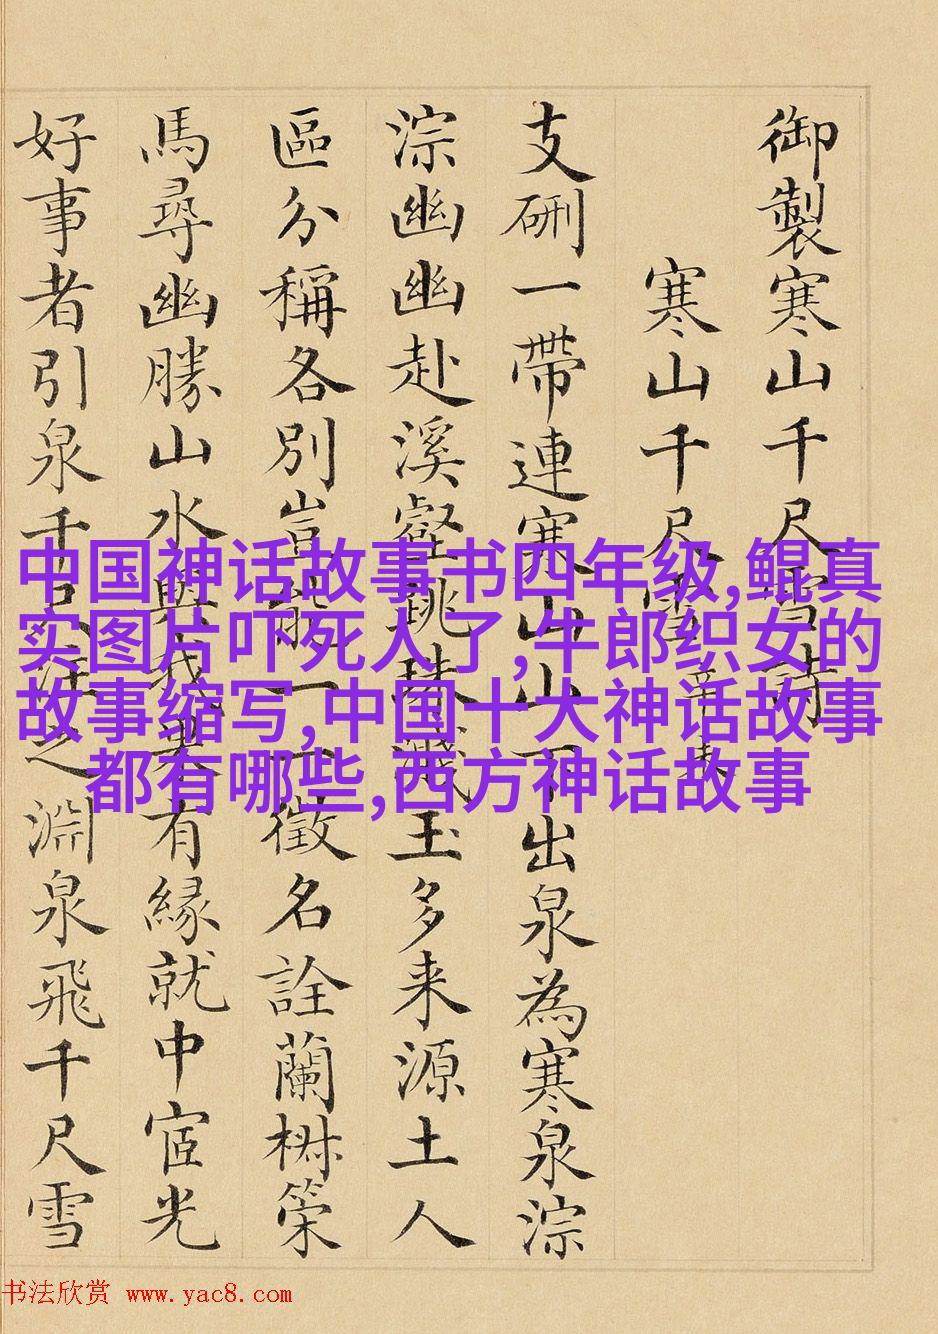 御製寒山千尺雪詩
寒山千尺雪 辛未
支硎一帶連寒山山下出泉為寒泉淙
淙幽幽赴溪壑跳珠濺玉多来源土人
區分稱各別豈能一一徵名詮蘭椒策
馬尋幽勝山水與我果有緣就中宧光
好事者引泉千尺注之淵泉飛千尺雪
中国神话故事书四年级,鲲真
实图片吓死人了,牛郎织女的
故事缩写,中国十大神话故事
都有哪些,西方神话故事
书法欣赏 www.yac8.com